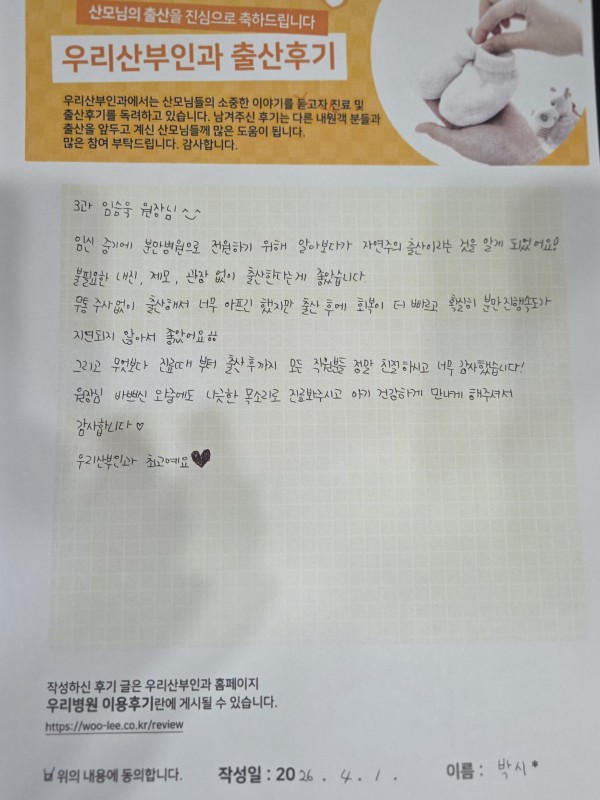 산모님의 출산을 진심으로 축하드립니다
우리산부인과 출산후기
우리산부인과에서는 산모님들의 소중한 이야기를 듣고자 진료 및
출산후기를 독려하고 있습니다. 남겨주신 후기는 다른 내원객 분들과
출산을 앞두고 계신 산모님들께 많은 도움이 됩니다.
많은 참여 부탁드립니다. 감사합니다.
3과 임승욱 원장님 ^_^
임신 중기에 분만병원으로 전원하기 위해 알아보다가 자연주의 출산이라는 것을 알게 되었어요!
불필요한 내진, 제모, 관장 없이 출산한다는게 좋았습니다
무통 주사 없이 출산해서 너무 아프긴 했지만 출산 후에 회복이 더 빠르고 확실히 분만 진행속도가
지연되지 않아서 좋았어요
그리고 무엇보다 진료때 부터 출산 후까지 모든 직원분들 정말 친절하시고 너무 감사했습니다!
원장님 바쁘신 와중에도 나긋한 목소리로 진료봐주시고 아기 건강하게 만나게 해주셔서
감사합니다 ♡
우리산부인과 최고예요 ♥
작성하신 후기 글은 우리산부인과 홈페이지
우리병원 이용후기란에 게시될 수 있습니다.
https://woo-lee.co.kr/review
위의 내용에 동의합니다. 작성일 : 2026 . 4 . 1 . 이름 : 박시*